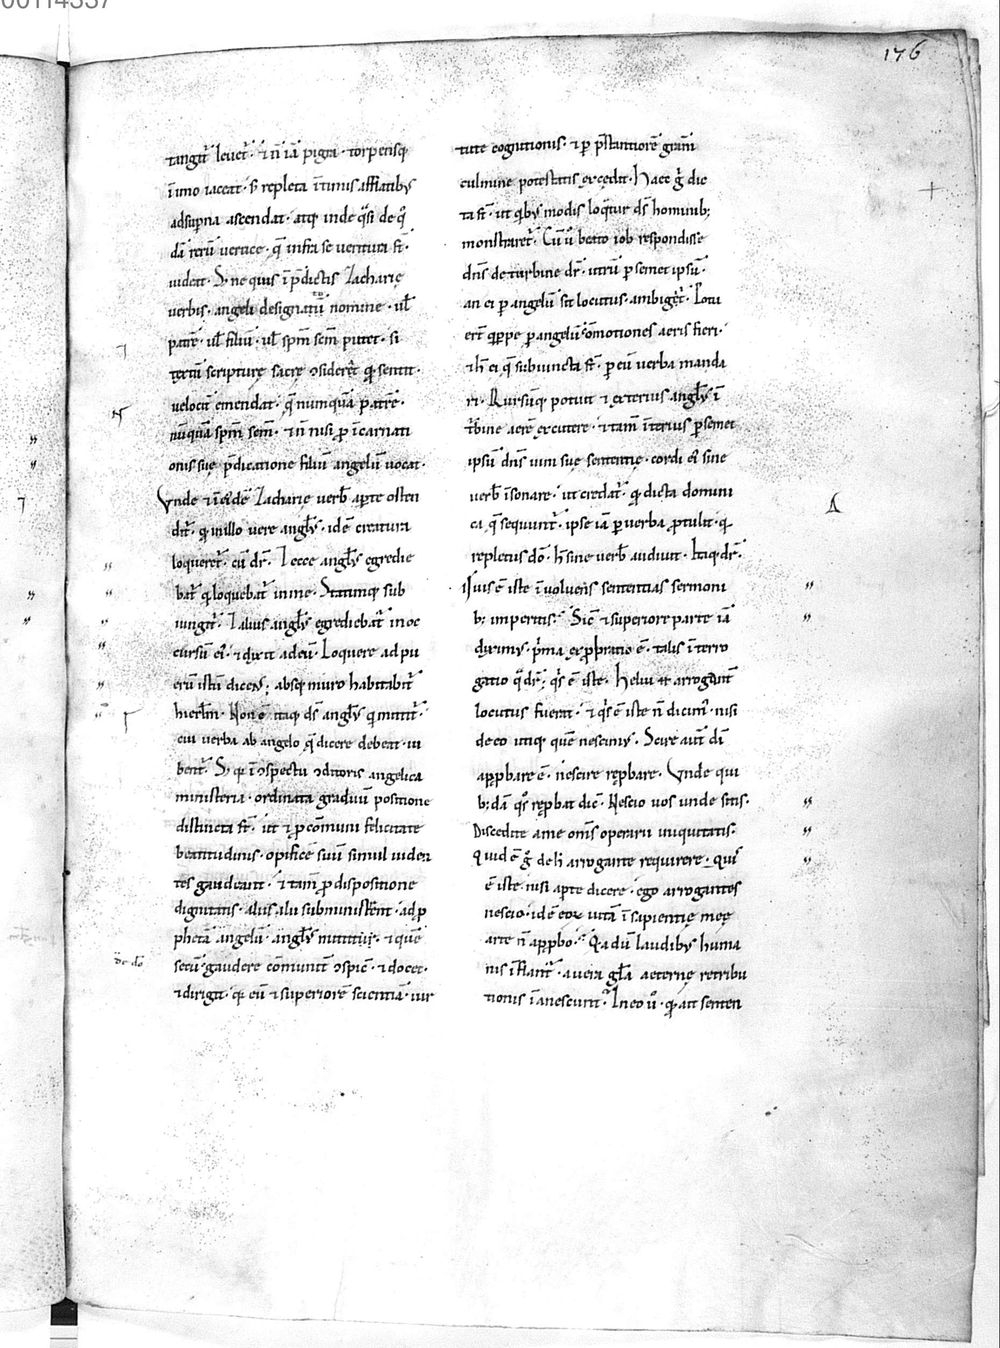 176
tangit̄ leuet̄ · & n̄ iā pigra · torpensq;
ī imo iaceat · s; repleta ītimis afflatib;
ad supna ascendat · atq; inde q̄si de q̊
dā rerū uertice · q̄ infra se uentura st̄ ·
uideat · S; ne quis ī p̄dictis Zacharię
uerbis · angeli designatū nomine · ul̄
patrē · ul̄ filiū · ul̄ spm̄ scm̄ putet · si
textū scripturę sacrę ↄsideret̄ qđ sentit ·
uelocit̄ emendat · q̄ numquā patrē ·
nūquā spm̄ scm̄ · & n̄ nisi p ī carnati
onis suę p̄dicatione filiū angelū uocat ·
Vnde & ī eisdē Zacharię uerb̄ apte osten
dit̄ · qđ in illo uere angl̄s · idē creatura
loqueret̄ · cū dr̄ · & ecce angl̄s egredie
bat̄ qi loquebat̄ in me · Statimq; sub
iungit̄ · & alius angl̄s egrediebat̄ in oc
cursū ei · & dixit ad eū · Loquere ad pu
erū istū dicens; absq; muro habitabit̄
hierl̄m · Non ē itaq; ds̄ angl̄s qi mittit̄ ·
cui uerba ab angelo q̄ dicere debeat · iu
bent̄ · S; qa ī ↄspectu ↄditoris angelica
ministeria · ordinata graduū positione
distincta st̄ · ut & p cōmuni felicitate
beatitudinis · opificē suū simul uiden
tes gaudeant · & tam̄ p dispositione
dignitatis · aliis alii subministrent · ad p
phetā angelū · angl̄s mittit̄ · & quē
secū gaudere cōmunit̄ ↄspic̄ · & docet ·
& dirigit · qa eū & superiorē scientiā · uir
tute cognitionis · & p p̄stantiorē gratiā
culmine potestatis excedit · Haec g̊ dic
ta st̄ · ut qib; modis loqtur ds̄ hominib;
monstraret̄ · Cū ū beato iob respondisse
dn̄s de turbine dr̄ · utrū p semet ipsū ·
an ei p angelū sit locutus · ambigit̄ · Potu
er̄t q̄ppe p angelū cōmotiones aeris fieri ·
& h̄ ei q̄ subiuncta st̄ · p eū uerba manda
ri · Rursūq; potuit & exterius angl̄s ī
t̄bine aerē excutere · & tam̄ īterius p semet
ipsū dn̄s uim suę sententię · cordi ei sine
uerb̄ insonare · ut credat̄ · qđ dicta domini
ca q̄ sequunt̄ · ipse iā p uerba ptulit · qi
repletus dō · h̄ sine uerb̄ audiuit · Itaq; dr̄ ·
Quis ē iste īuoluens sententias sermoni
b; imperitis · Sic̄ & superiore parte iā
diximus · p̄ma exprobratio ē · talis īterro
gatio q̄ dr̄; q̄s ē iste · Heliu & arroganter
locutus fuerat · & q̄s ē iste n̄ dicim̄ · nisi
de eo utiq; quē nescimus · Scire aut̄ dī
approbare ē · nescire reprobare · Vnde qui
b; dā q̄s reprobat dic̄ · Nescio uos unde sitis ·
Discedite a me om̄s operarii iniquitatis ·
Quid ē g̊ de h̄ arrogante requirere · Quis
ē iste nisi apte dicere · ego arrogantes
nescio · id ē eorū uitā ī sapientię meę
arte n̄ approbo · Qa dū laudib; huma
nis īflant̄ · a uera gl̄a aeternę retribu
tionis ī anescunt · In eo ū · qđ ait senten